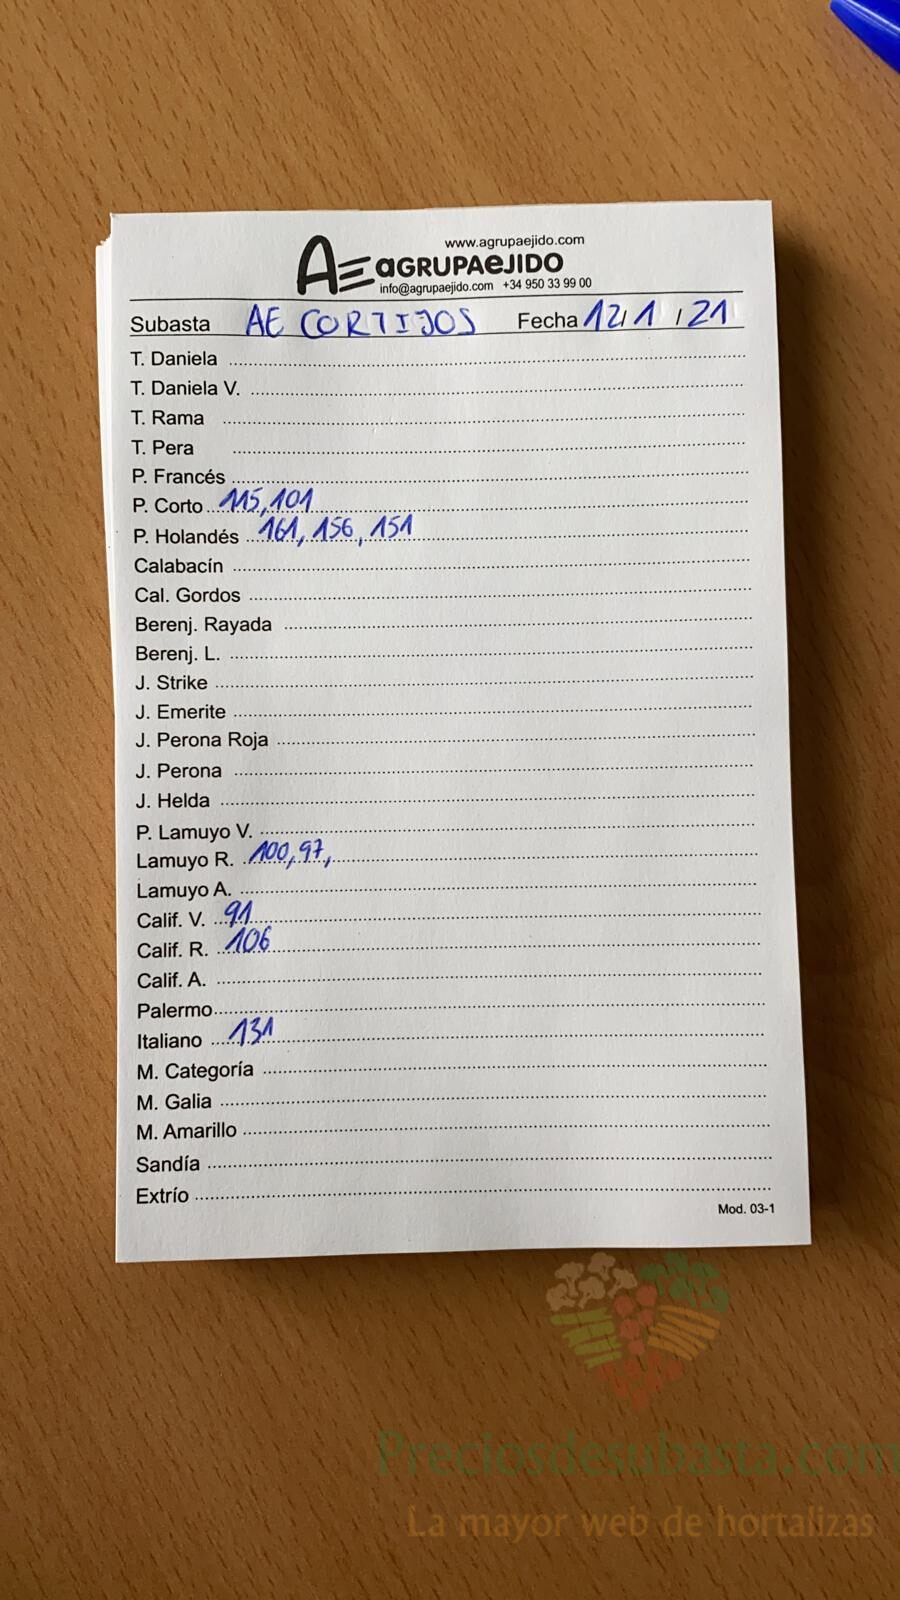 www.agrupaejido.com
AE aGRUPAeJIDO
info@agrupaejido.com +34 950 33 99 00
Subasta AE CORTIJOS Fecha 12/1/21
T. Daniela
T. Daniela V.
T. Rama
T. Pera
P. Francés
P. Corto 115,101
P. Holandés 161, 156, 151
Calabacín
Cal. Gordos
Berenj. Rayada
Berenj. L.
J. Strike
J. Emerite
J. Perona Roja
J. Perona
J. Helda
P. Lamuyo V.
Lamuyo R. 100,97,
Lamuyo A.
Calif. V. 91
Calif. R. 106
Calif. A.
Palermo
Italiano 131
M. Categoría
M. Galia
M. Amarillo
Sandía
Extrío
Mod. 03-1
Preciosdesubasta.com
La mayor web de hortalizas